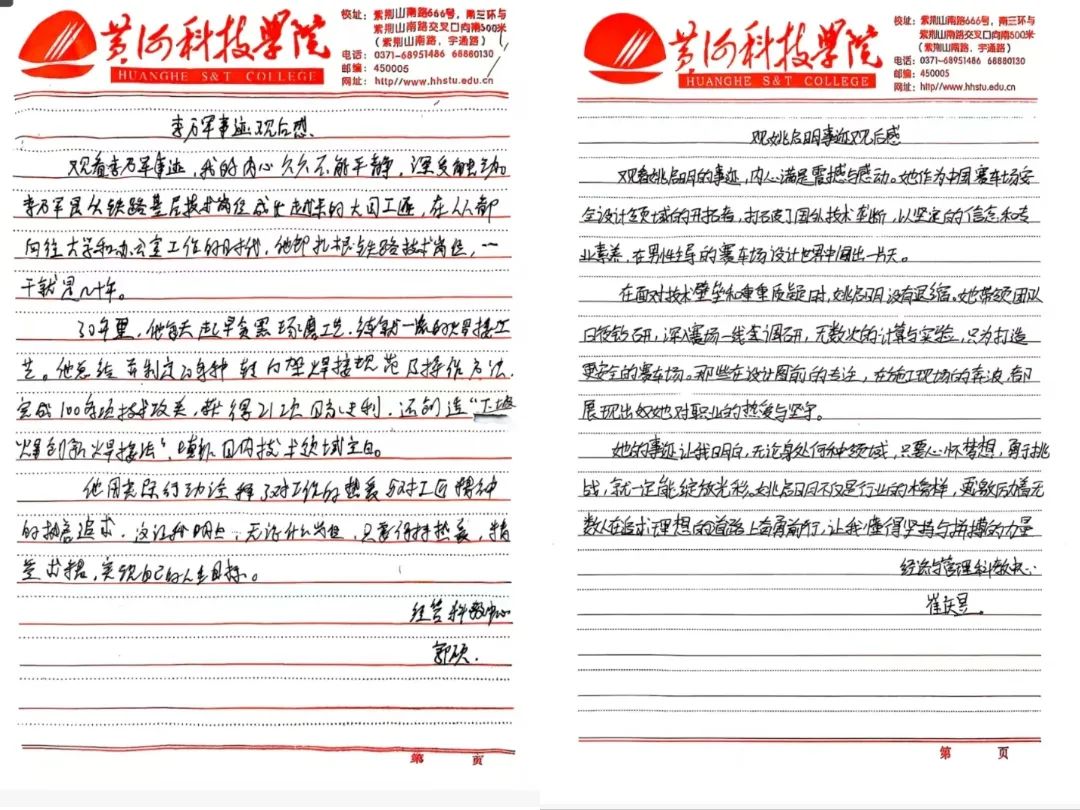 黄河科技学院
HUANGHE S&T COLLEGE
校址：紫荆山南路666号，南三环与
紫荆山南路交叉口向南500米
（紫荆山南路，宇通路）
电话：0371-68951486 68880130
邮编：450005
网址：http//www.hhstu.edu.cn
李万军事迹观后感.
观看李万军事迹，我的内心久久不能平静，深受触动
李万军是从铁路基层技术岗位成长起来的大国工匠，在人人都
向往大学和办公室工作的时代，他却扎根铁路技术岗位，一
干就是几十年。
30年里，他每天起早贪黑琢磨工艺，练就一流的焊接工
艺。他总结并制定了多种转向架焊接规范及操作方法，
完成100多项技术攻关，获得21次国家专利，还创造“下坡
焊创新焊接法”，填补国内技术领域空白。
他用实际行动诠释了对工作的热爱与对工匠精神
的执着追求，这让我明白，无论什么岗位，只要保持热爱，精
益求精，实现自己的人生目标。
经管科教中心
郭硕.
第 页
黄河科技学院
HUANGHE S&T COLLEGE
校址：紫荆山南路666号，南三环与
紫荆山南路交叉口向南500米
（紫荆山南路，宇通路）
电话：0371-68951486 68880130
邮编：450005
网址：http//www.hhstu.edu.cn
观姚启明事迹观后感
观看姚启明的事迹，内心满是震撼与感动。她作为中国赛车场安
全设计领域的开拓者，打破了国外技术垄断，以坚定的信念和专
业素养，在男性主导的赛车场设计世界中闯出一片天。
在面对技术壁垒和重重质疑时，姚启明没有退缩。她带领团队
日夜钻研，深入赛场一线去调研，无数次的计算与实验，只为打造
更安全的赛车场。那些在设计图前的专注，在施工现场的奔波，都
展现出她对职业的热爱与坚守。
她的事迹让我明白，无论身处何种领域，只要心怀梦想，勇于挑
战，就一定能绽放光彩。姚启明不仅是行业的榜样，更激励着无
数人在追求理想的道路上奋勇前行，让我懂得坚持与拼搏的力量
经济与管理科教中心
崔庆昱。
第 页